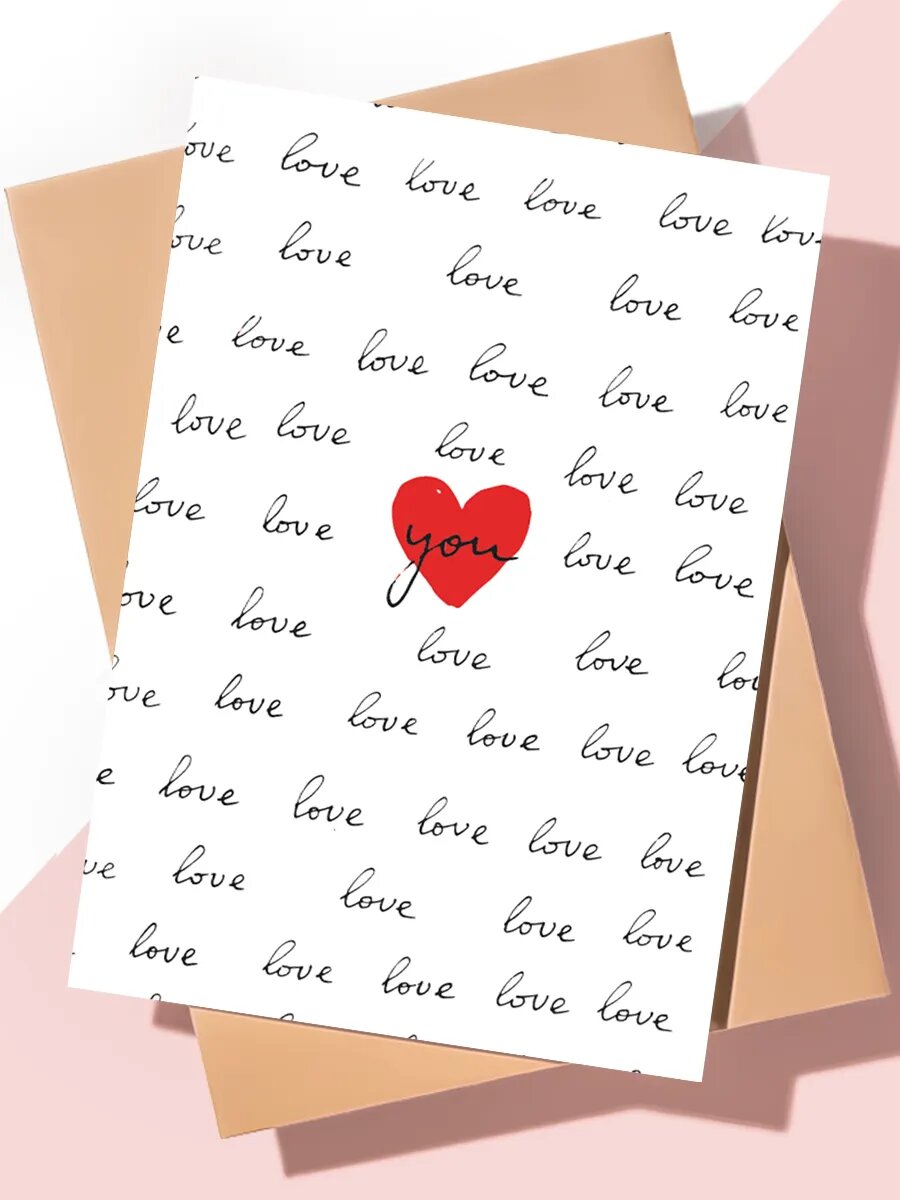 love love love love love lov
love love love love love
e love love love love love
love love love love love
love love you love love
ove love love love lov
ove love love love love love
e love love love love love
ve love love love love
love love love love love